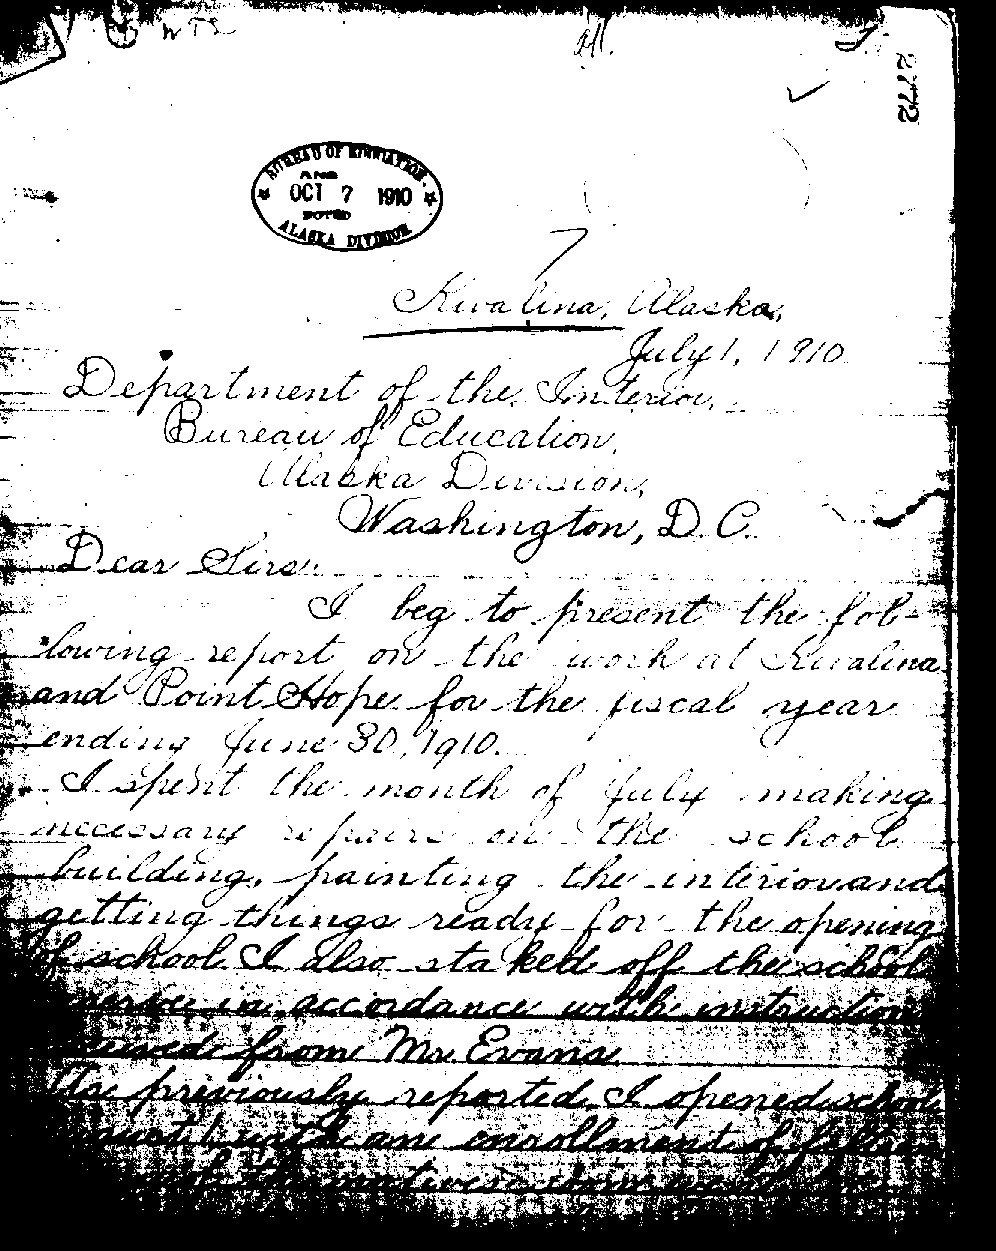 W T L
all.
2772
BUREAU OF EDUCATION.
AND
OCT 7 1910
NOTED
ALASKA DIVISION
7
Kivalina, Alaska,
July 1, 1910
Department of the Interior,
Bureau of Education,
Alaska Division,
Washington, D.C.
Dear Sirs:
I beg to present the fol-
lowing report on the work at Kivalina
and Point Hope for the fiscal year
ending June 30, 1910.
I spent the month of July making
necessary repairs on the school
building, painting the interior and
getting things ready for the opening
of school. I also staked off the school
reserve in accordance with instructions
received from Mr. Evans.
As previously reported I opened school
August 1 with an enrollment of
the natives